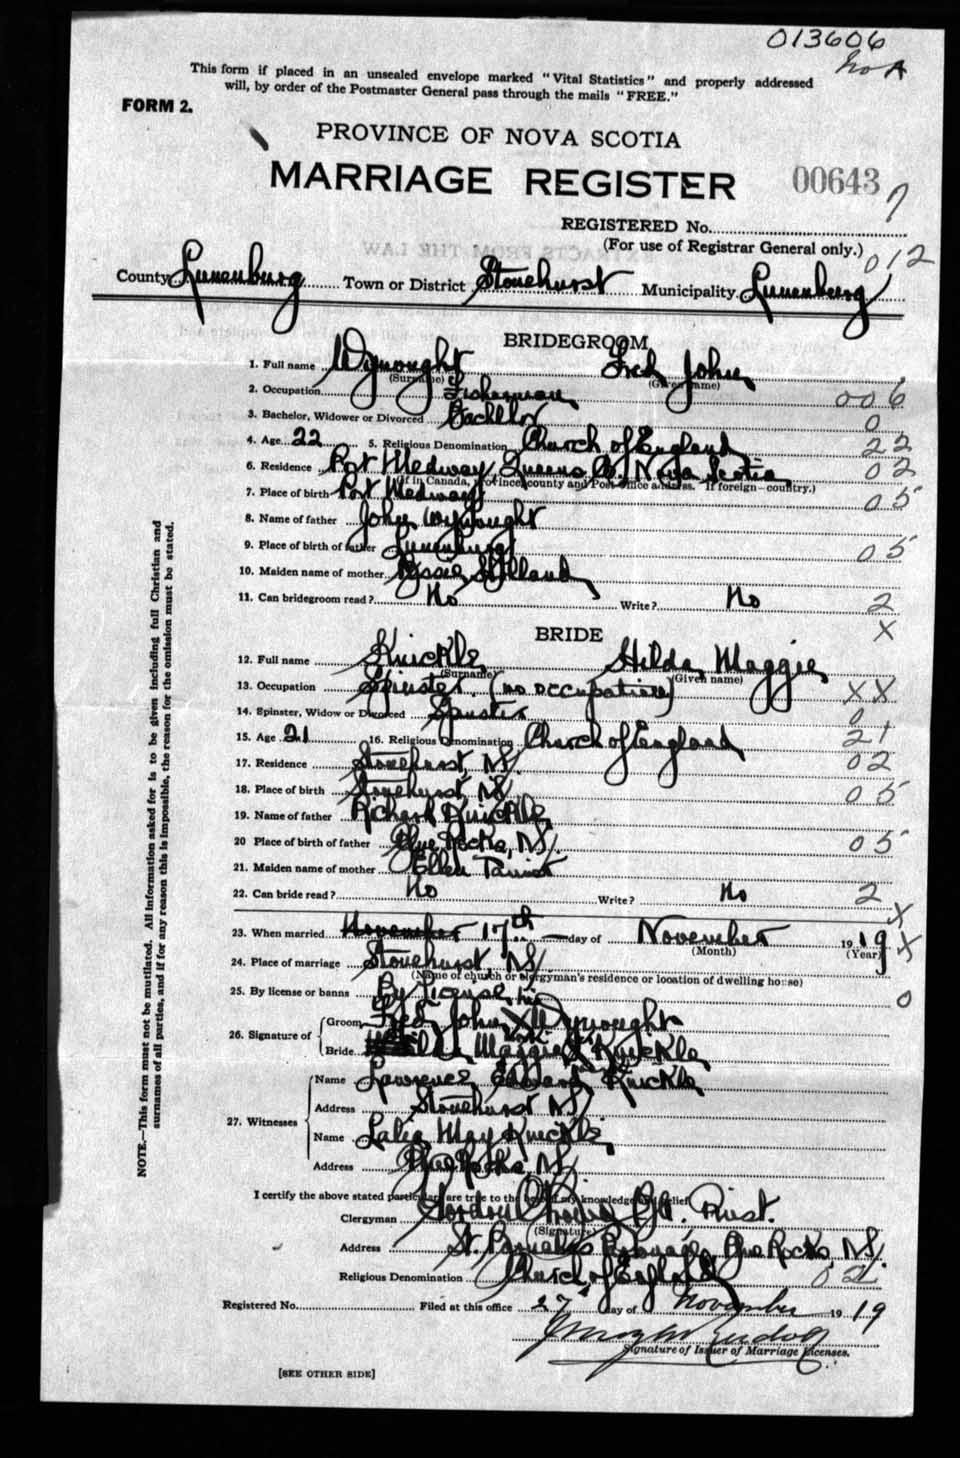 013606
This form if placed in an unsealed envelope marked "Vital Statistics" and properly addressed
will, by order of the Postmaster General pass through the mails "FREE."
FORM 2.
PROVINCE OF NOVA SCOTIA
MARRIAGE REGISTER 00643
7
REGISTERED No.
(For use of Registrar General only.)
012
County Lunenburg Town or District Stonehurst Municipality Lunenburg
BRIDEGROOM
1. Full name Wynought Fred John
(Surname) (Given name)
2. Occupation Fisherman 006
3. Bachelor, Widower or Divorced Bachelor 0
4. Age 22 5. Religious Denomination Church of England 22
6. Residence Port Medway, Queens Co., Nova Scotia 02
(If in Canada, province, county and Post Office address. If foreign—country.)
7. Place of birth Port Medway 05
8. Name of father John Wynought
9. Place of birth of father Lunenburg 05
10. Maiden name of mother
11. Can bridegroom read? No Write? No 2
X
BRIDE
12. Full name Knickle Hilda Maggie
(Surname) (Given name)
13. Occupation Spinster (no occupation) XX
14. Spinster, Widow or Divorced Spinster 0
15. Age 21 16. Religious Denomination Church of England 21
17. Residence Stonehurst, NS. 02
18. Place of birth Stonehurst, NS. 05
19. Name of father Richard Knickle
20 Place of birth of father Blue Rocks, NS. 05
21. Maiden name of mother Ellen
22. Can bride read? No Write? No 2
X
23. When married November 17th day of November 1919 X
(Month) (Year)
24. Place of marriage Stonehurst, NS.
(Name of church or clergyman's residence or location of dwelling house)
25. By license or banns By license 0
his
26. Signature of Groom Fred John X Wynought
Bride Maggie X Knickle
27. Witnesses Name Lawrence Edward Knickle
Address Stonehurst NS.
Name May Knickle
Address Blue Rocks, NS.
I certify the above stated particulars are true to the best of my knowledge and belief
Clergyman Gordon Priest.
(Signature)
Address St. Barnabas Parsonage, Blue Rocks, NS.
Religious Denomination Church of England 02
Registered No. Filed at this office 27 day of November 1919
Signature of Issuer of Marriage Licenses.
[SEE OTHER SIDE]
NOTE.—This form must not be mutilated. All information asked for is to be given including full Christian and
surnames of all parties, and if for any reason this is impossible, the reason for the omission must be stated.